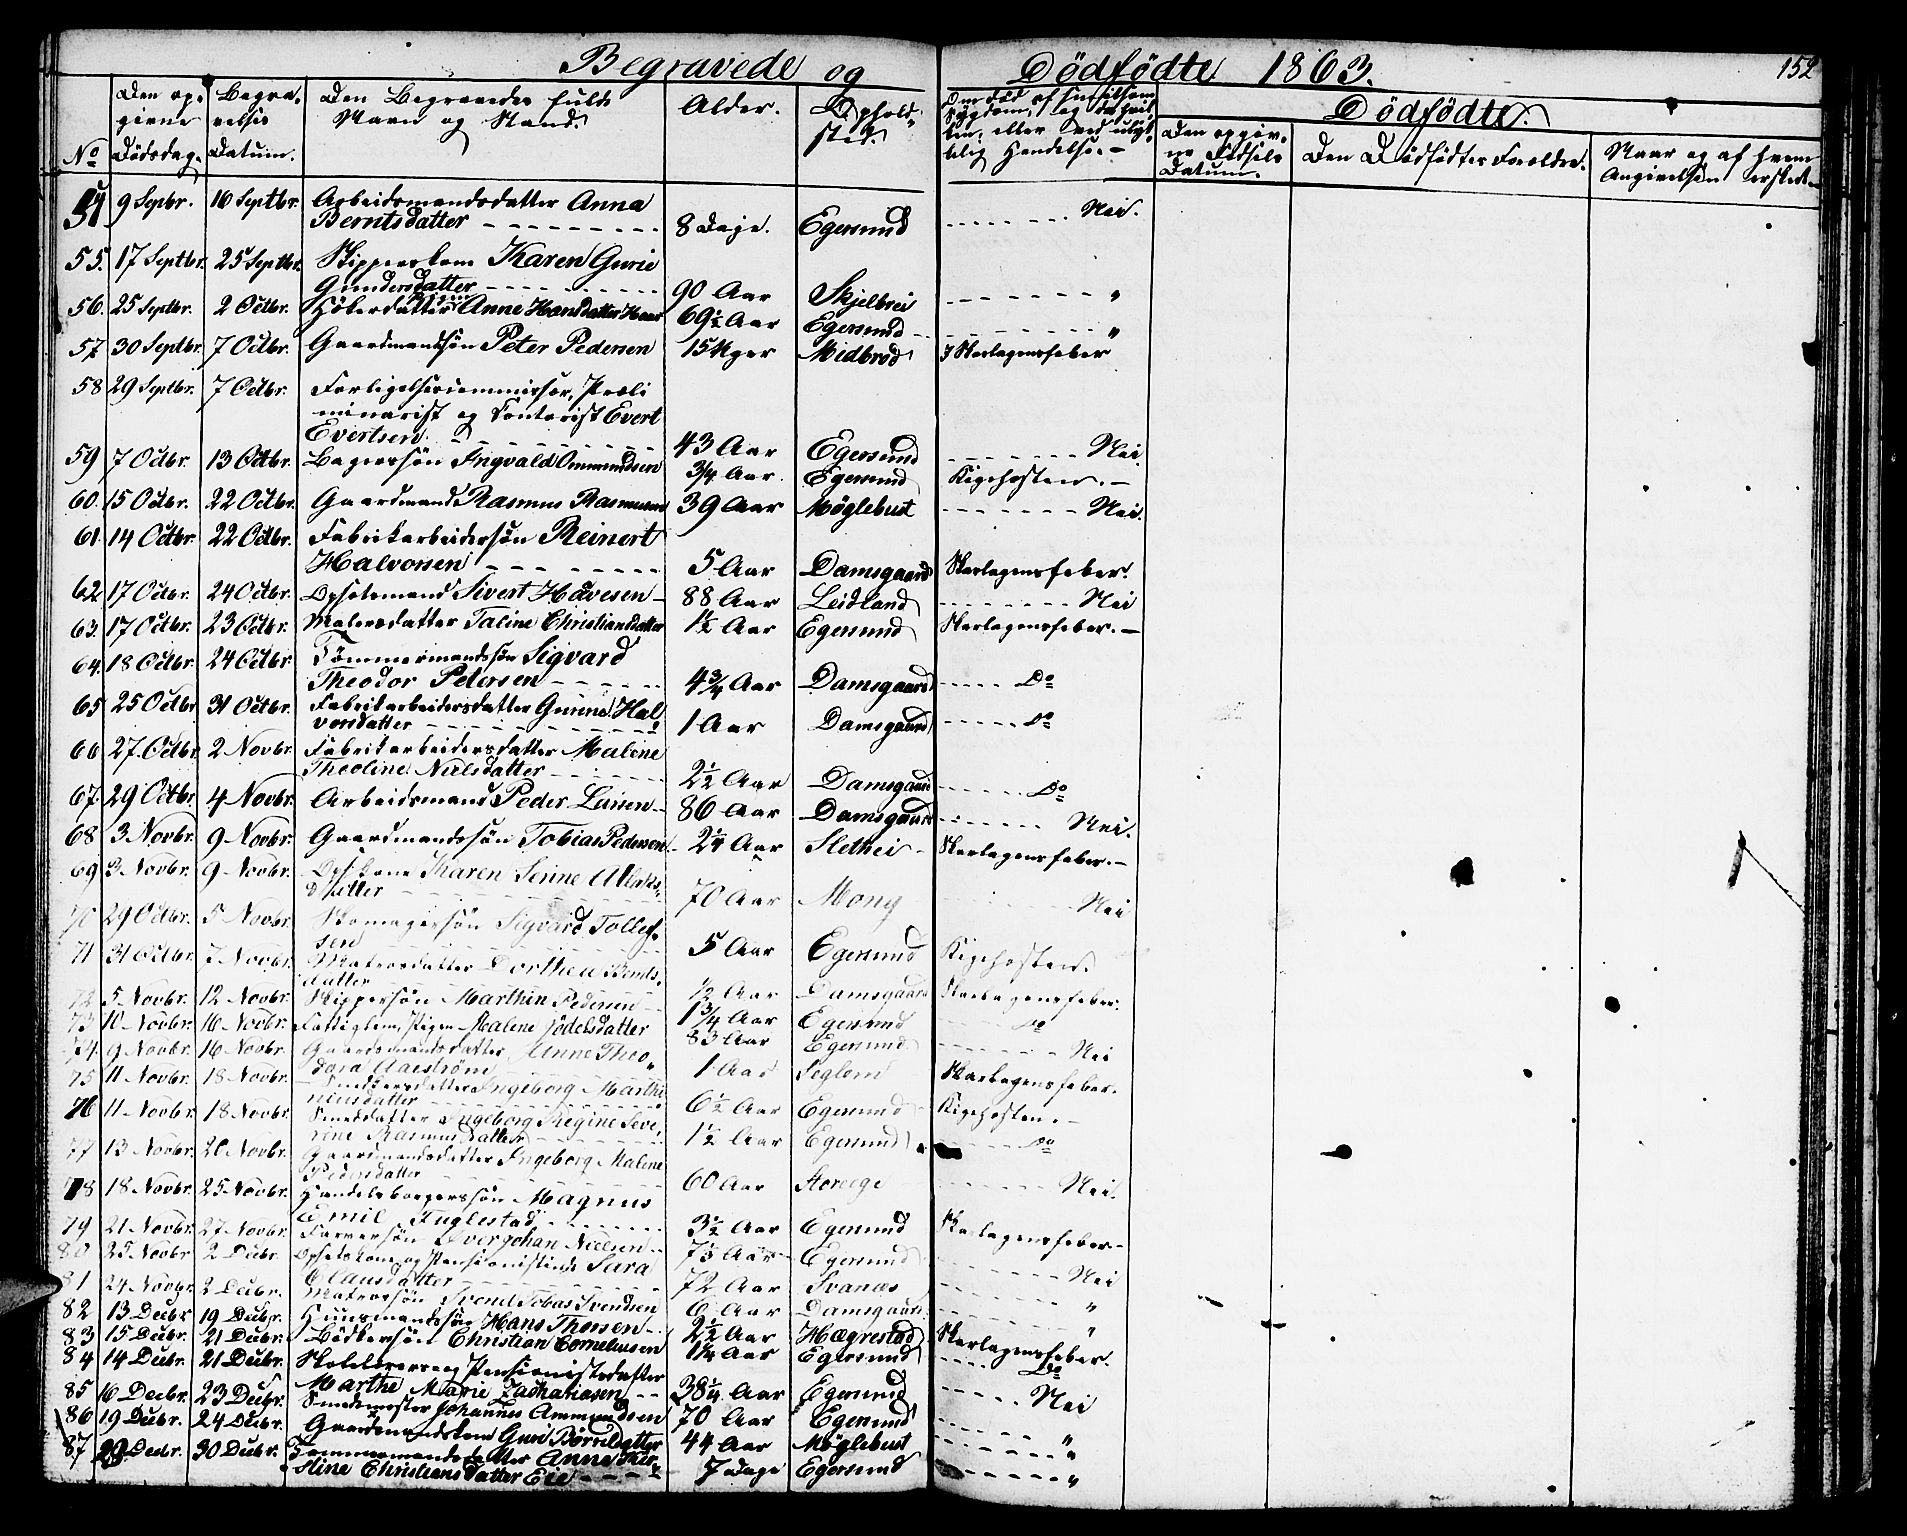 Begravede og Dødfødte 1863.
152
No
Den op-
givne
Dödsdag.
Begra-
velses
Datum.
Den Begravedes fulde
Navn og Stand.
Alder.
Ophold-
sted.
Om død af smitsom
Sygdom, og da hvil-
ken, eller ved ulyk-
kelig Hendelse.
Dødfødte.
Den opgiv-
ne Födsels
Datum.
Den Dødfødtes Foreldre.
Naar og af hvem
Angivelsen er skeet.
54 9 Septbr. 16 Septbr. Arbeidsmandsdatter Anna
Berntsdatter 8 Dage. Egersund Nei.
55. 17 Septbr. 25 Septbr. Skipperskone Karen Gurie
Gundersdatter 90 Aar Skjelbrei "
56. 25 Septbr. 2 Octbr. Hökerdatter Anne Hansdatter Haar 69½ Aar Egersund "
57 30 Septbr. 7 Octbr. Gaardmandsön Peter Pedersen 15 Uger Midbrød Skarlagensfeber
58 29 Septbr. 7 Octbr. Forligelsescommissær, Præli
minarist og Contorist Evert
Evertsen 43 Aar Egersund Nei
59 7 Octbr. 13 Octbr. Bagersön Ingvald Ommundsen 3/4 Aar. Egersund Kighosten.
60. 15 Octbr. 22 Octbr. Gaardmand Rasmus Rasmussen 39 Aar Møglebust Nei.
61. 14 Octbr. 22 Octbr. Fabrikarbeidersön Reinert
Halvorsen 5 Aar Damsgaard Skarlagensfeber.
62 17 Octbr. 24 Octbr. Opholdsmand Sivert Hövesen 88 Aar Leidland Nei
63. 17 Octbr. 23 Octbr. Malersdatter Taline Christiansdatter 1½ Aar Egersund Skarlagensfeber.
64. 18 Octbr. 24 Octbr. Tömmermandssön Sigvard
Theodor Petersen 4¾ Aar Damsgaard Do
65 25 Octbr 31 Octbr. Fabrikarbeidersdatter Gurine Hal-
vorsdatter 1 Aar Damsgaard Do
66 27. Octbr 2 Novbr. Fabrikarbeidersdatter Malene
Theoline Nielsdatter 2½ Aar Damsgaard Do
67. 29 Octbr. 4 Novbr. Arbeidsmand Peder Larsen 86 Aar Damsgaard Nei.
68 3. Novbr. 9 Novbr. Gaardmandssön Tobias Pedersen 2¼ Aar Slethei Skarlagensfeber.
69 3 Novbr. 9 Novbr. Karen Serine Atlaks-
datter 70 Aar Mong Nei
70 29 Octbr. 5 Novbr. Skomagersön Sigvard Tollef-
sen 5 Aar Egersund Kighosten.
71 31 Octbr. 7 Novbr. Matrosdatter Dorthea Bernts-
datter ½ Aar Damsgaard Skarlagensfeber.
72 5. Novbr. 12 Novbr. Skippersön Marthin Pedersen 1¾ Aar Egersund Do
73 10 Novbr. 16 Novbr. Fattiglem, Pigen Malene Jödelsdatter 83 Aar Egersund Nei
74. 9 Novbr. 16 Novbr. Gaardsmandsdatter Anne Theo-
dora Aaeström 1 Aar Seglem Skarlagensfeber.
75 11 Novbr. 18 Novbr. Ingeborg Marthi
niusdatter 6½ Aar Egersund Kighosten.
76 11 Novbr. 18 Novbr. Smeddatter Ingeborg Regine Seve-
rine Rasmusdatter 1½ Aar Egersund Do
77 13 Novbr. 20 Novbr. Gaardmandsdatter Ingeborg Malene
Pedersdatter 60 Aar Nei.
78 18 Novbr. 25 Novbr. Handelsborgersön Magnus
Emil Fuglestad 3½ Aar Egersund Skarlagensfeber
79 21 Novbr. 27 Novbr. Farversön Johan Nielsen Aar Egersund
80 25 Novbr 2 Decbr. Opholdskone og Pensionistinde Sara
Clausdatter 72 Aar Svanæs Nei
81 24 Novbr. 2 Decbr. Matrossön Svend Tobias Svendsen 6 Aar Damsgaard "
82 13 Decbr 19 Decbr. Huusmandssön Hans Thorsen 2½ Aar Hægrestad "
83 15 Decbr. 21 Decbr. Bödkersön Christian Corneliussen 1¼ Aar Egersund Skarlagensfeber.
84 14 Decbr. 21 Decbr. Skolelærer og Pensionistsdatter
Marthe Marie Zachariasen 38¼ Aar Egersund Do
85 16 Decbr. 23 Decbr. Smedmester Johannes Ammundsen 70 Aar Egersund Nei
86 19 Decbr. 24 Decbr. Gaardmandskone Guri Börresdatter 44 Aar Møglebust "
87 Decbr. 30 Decbr. Tömmermandsdatter Anne Kir-
stine Christiansdatter Eie 7 Dage Egersund "